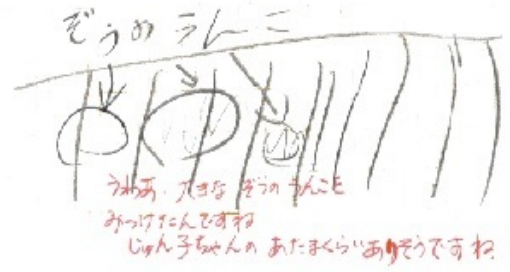 ぞうのうんこ
うわあ、大きな ぞうのうんこを
みつけたんですね
じゅん子ちゃんの あたまくらいありそうですね